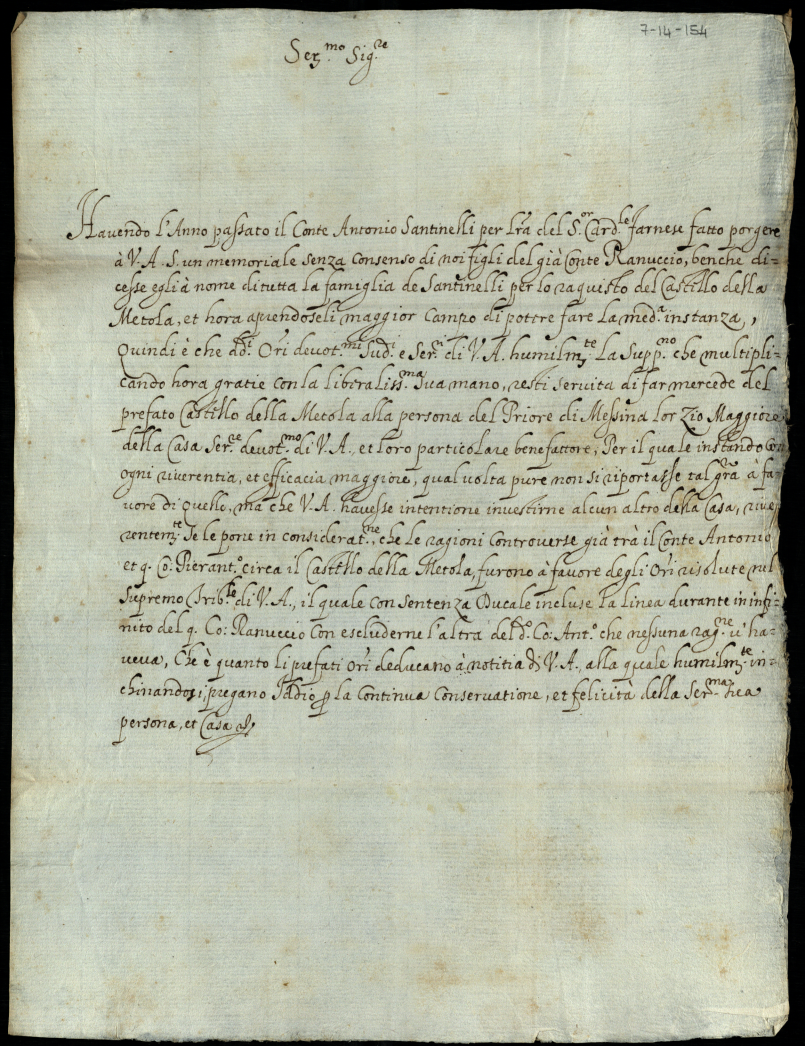 7-14-154
Ser.mo Sig.re
Havendo l'Anno passato il Conte Antonio Santinelli per lra del S.or Card.le Farnese fatto porgere
à V. A. S. un memoriale senza consenso di noi figli del già Conte Ranuccio, benche di=
cesse egli à nome di tutta la famiglia de Santinelli per lo raquisto del Castillo della
Metola, et hora aprendoseli maggior campo di pottre fare la med.a instanza,
Quindi è che d.i Ori devot.mi Sud.i e Ser.ri di V. A. humilm.te La Supp.no che multipli=
cando hora gratie con la liberaliss.ma Sua mano, resti servita di far mercede del
prefato Castillo della Metola alla persona del Priore di Messina lor Zio Maggiore
della Casa Ser.re devot.mo di V. A., et loro particolare benefattore, Per il quale instando con
ogni riverentia, et efficacia maggiore, qual volta pure non si riportasse tal gra à fa=
vore di quello, ma che V. A. havesse intentione investirne alcun altro della Casa, rive=
rentem.te Se le pone in considerat.ne, che le ragioni controverse già trà il Conte Antonio
et q. Co: Pierant.o circa il Castello della Metola, furono à favore degli Ori risolute nel
Supremo Trib.le di V. A., il quale con sentenza Ducale incluse la linea durante in infi=
nito del q. Co: Ranuccio con escluderne l'altra del d.o Co: Ant.o che nessuna rag.ne v'ha=
veva, Che è quanto li prefati Ori deducano à notitia di V. A. alla quale humilm.te in=
chinandosi, pregano Idio p la continua conservatione, et felicità della Ser.ma Sua
persona, et Casa